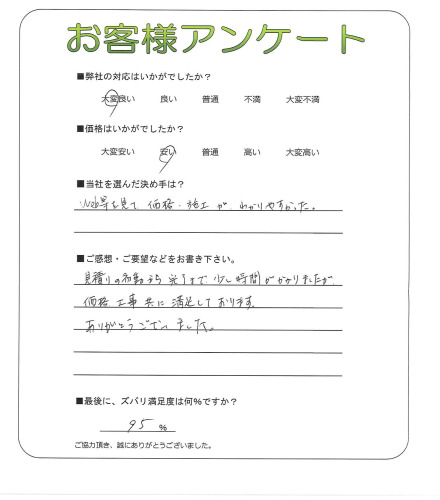 お客様アンケート
■弊社の対応はいかがでしたか？
大変良い 良い 普通 不満 大変不満
■価格はいかがでしたか？
大変安い 安い 普通 高い 大変高い
■当社を選んだ決め手は？
Web等を見て 価格・施工が、わかりやすかった。
■ご感想・ご要望などをお書き下さい。
見積りの 完了まで 少し時間がかかりましたが、
価格、工事 共に 満足しております。
ありがとうございました。
■最後に、ズバリ満足度は何％ですか？
95 ％
ご協力頂き、誠にありがとうございました。